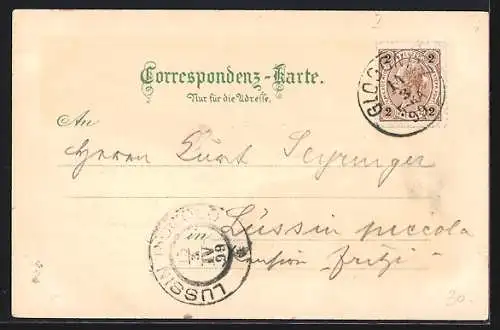 Correspondenz-Karte.
Nur für die Adresse.
2 2
2 2
GLOGG
99
An
Herrn Curt
Lussin piccolo
Pension "Fritzi"
LUSSIN PICCOLO
IV
99
30.-